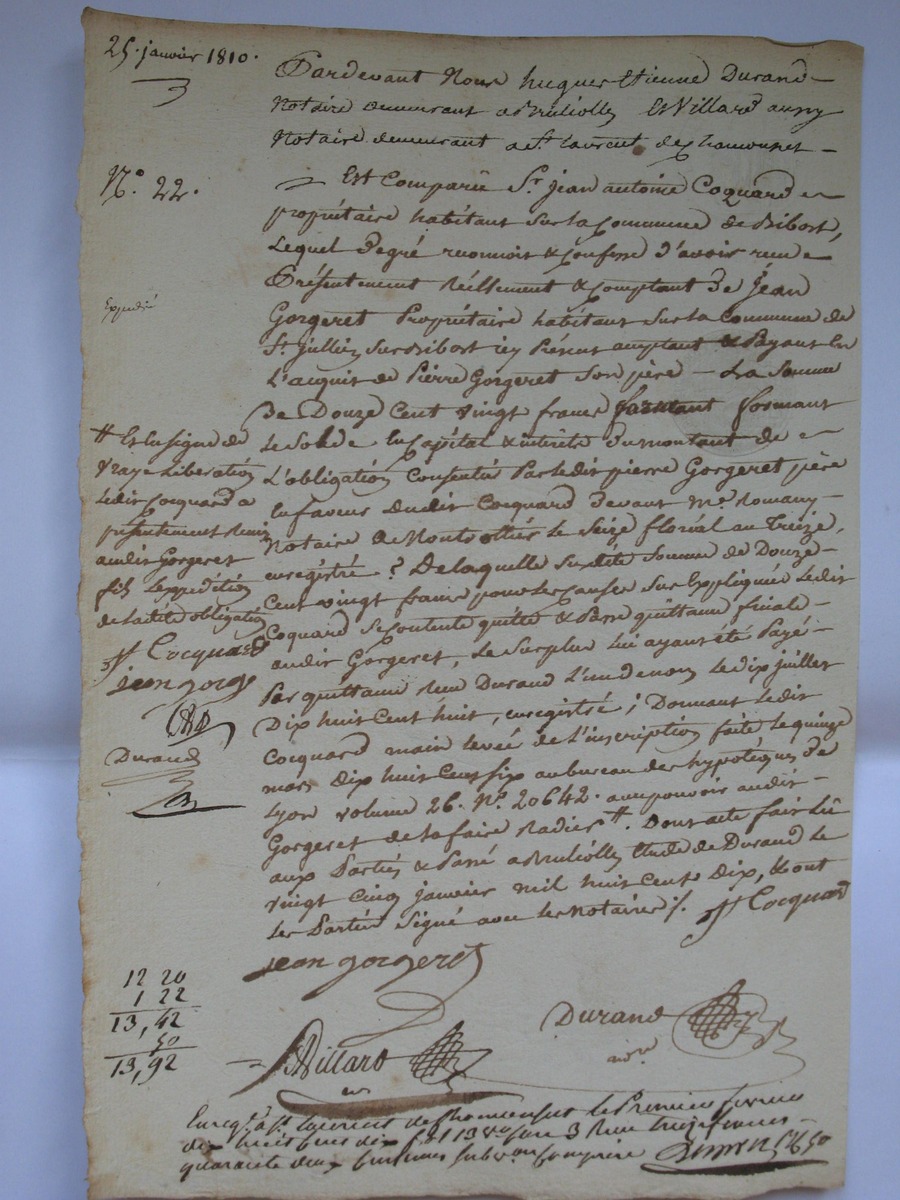 25 janvier 1810.
Pardevant Nous hugues Etienne Durand
Notaire demeurant a Bruliolle Et Villard aussy
Notaire demeurant a St. Laurent de Chamousset
N.° 22.
Est Comparu Sr. jean antoine Coquard
propriétaire habitant sur la Commune de Bibost,
Lequel de gré reconnoit & Confesse d'avoir reçu
Présentement Réellement & Comptant De Jean
Expédié
Gorgeret Propriétaire habitant sur la Commune de
St. jullien sur Bibost icy Présent acceptant & Payant En
L'acquit de Pierre Gorgeret son père La Somme
De Douze Cent vingt francs formant
Le Solde En Capital & intérêts du montant de
L'obligation Consentie Par ledit pierre Gorgeret père
En faveur dudit Cocquard Devant Me. Romany
Notaire a Montrottier le Seize floréal an Treize,
enregistré. De laquelle susdite Somme de Douze
Cent vingt francs pour les Causes sus Expliquées Ledit
Coquard se Contente quitte & Passe quittance finale
audit Gorgeret, le Surplus lui ayant été Payé
Par quittance reçu Durand L'un de nous le dix juillet
Dix huit Cent huit, enregistré ; Donnant Ledit
Cocquard main levée de L'inscription faite le quinze
mars dix huit Cent six au bureau des hypoteques de
Lyon volume 26. N°. 20642. avec pouvoir audit
Gorgeret de la faire Radier #. Dont acte fait Lû
aux Parties & Passé a Brulliolle Etude de Durand Le
vingt Cinq janvier mil huit Cent dix, & ont
les Parties Signé avec les Notaires ./. Cocquard
# Et En signe de
Vraye Libération
Ledit Cocquard a
présentement Remis
audit Gorgeret
fils L'expédition
de ladite obligation
Cocquard
jean gorge
Durand
jean gorgeret
12 20
1 22
13,42
50
13,92
Durand
nore
Villard
Enregt. a St. Laurent de Chamousset le Premier fevrier
dix huit cent dix f° 13 Vo Case 3 Reçu Treize francs
quarante deux Centimes subvon Comprise